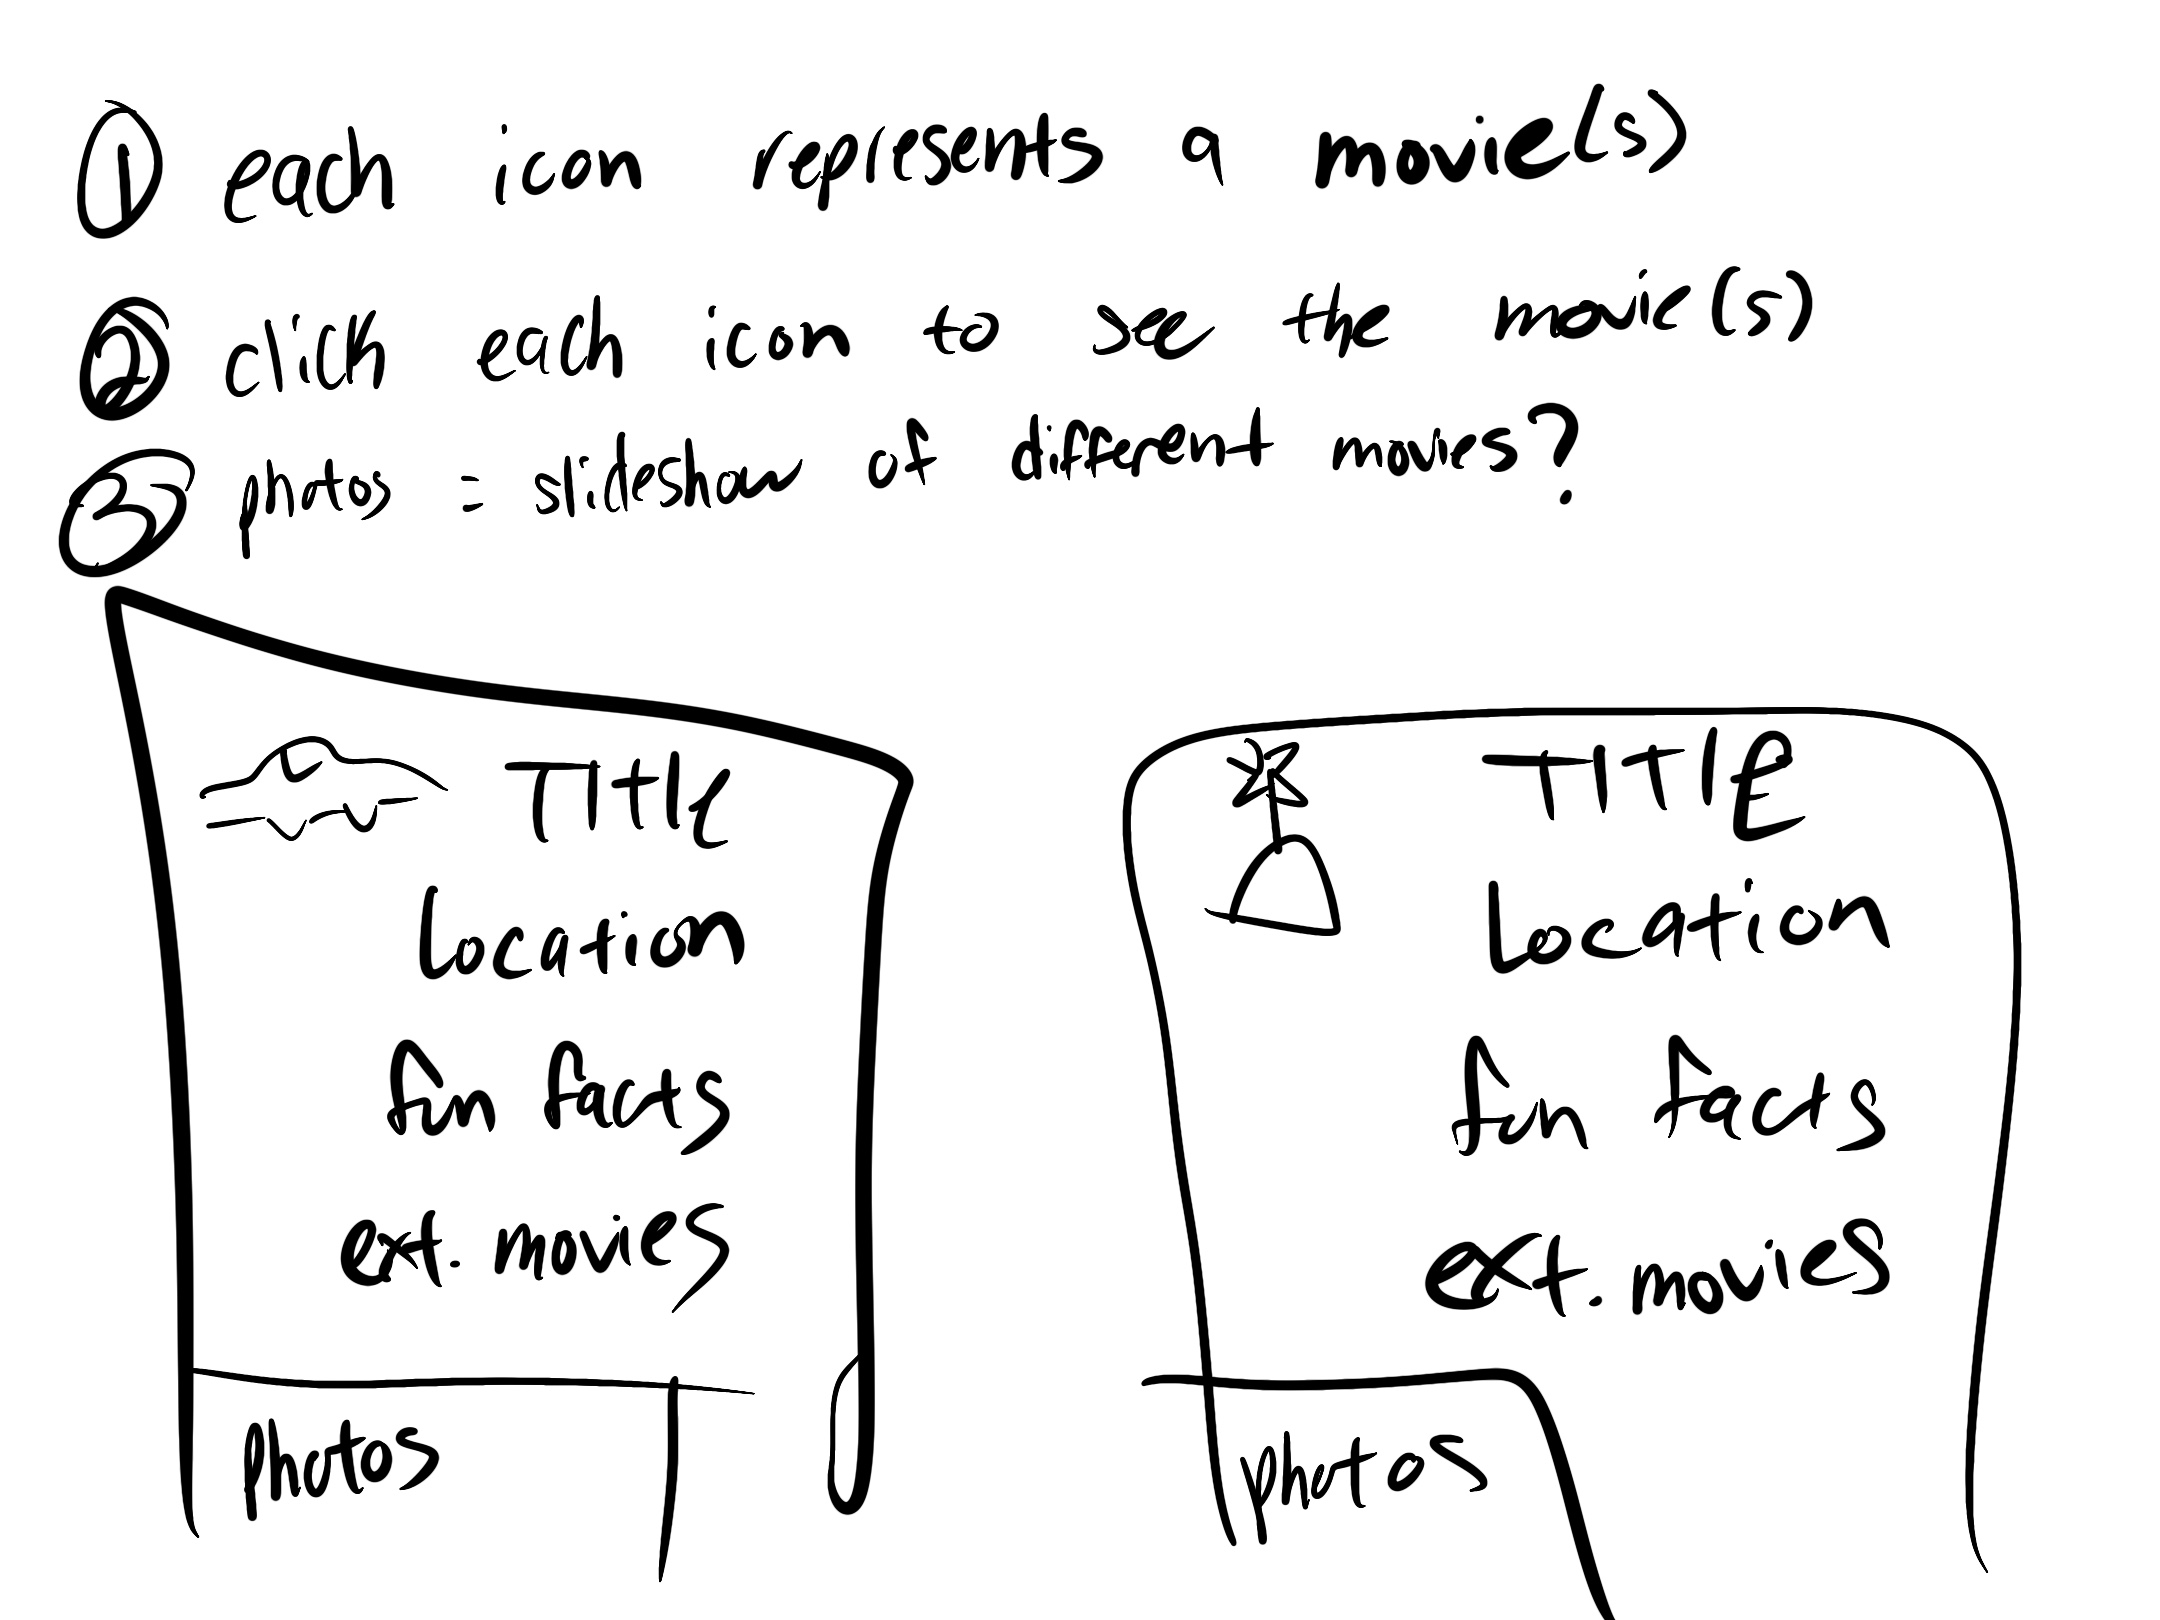 ① each icon represents a movie(s)
② click each icon to see the movie(s)
③ photos = slideshow of different movies?
Title
Location
fun facts
ext. movies
photos
TITLE
Location
fun facts
ext. movies
photos